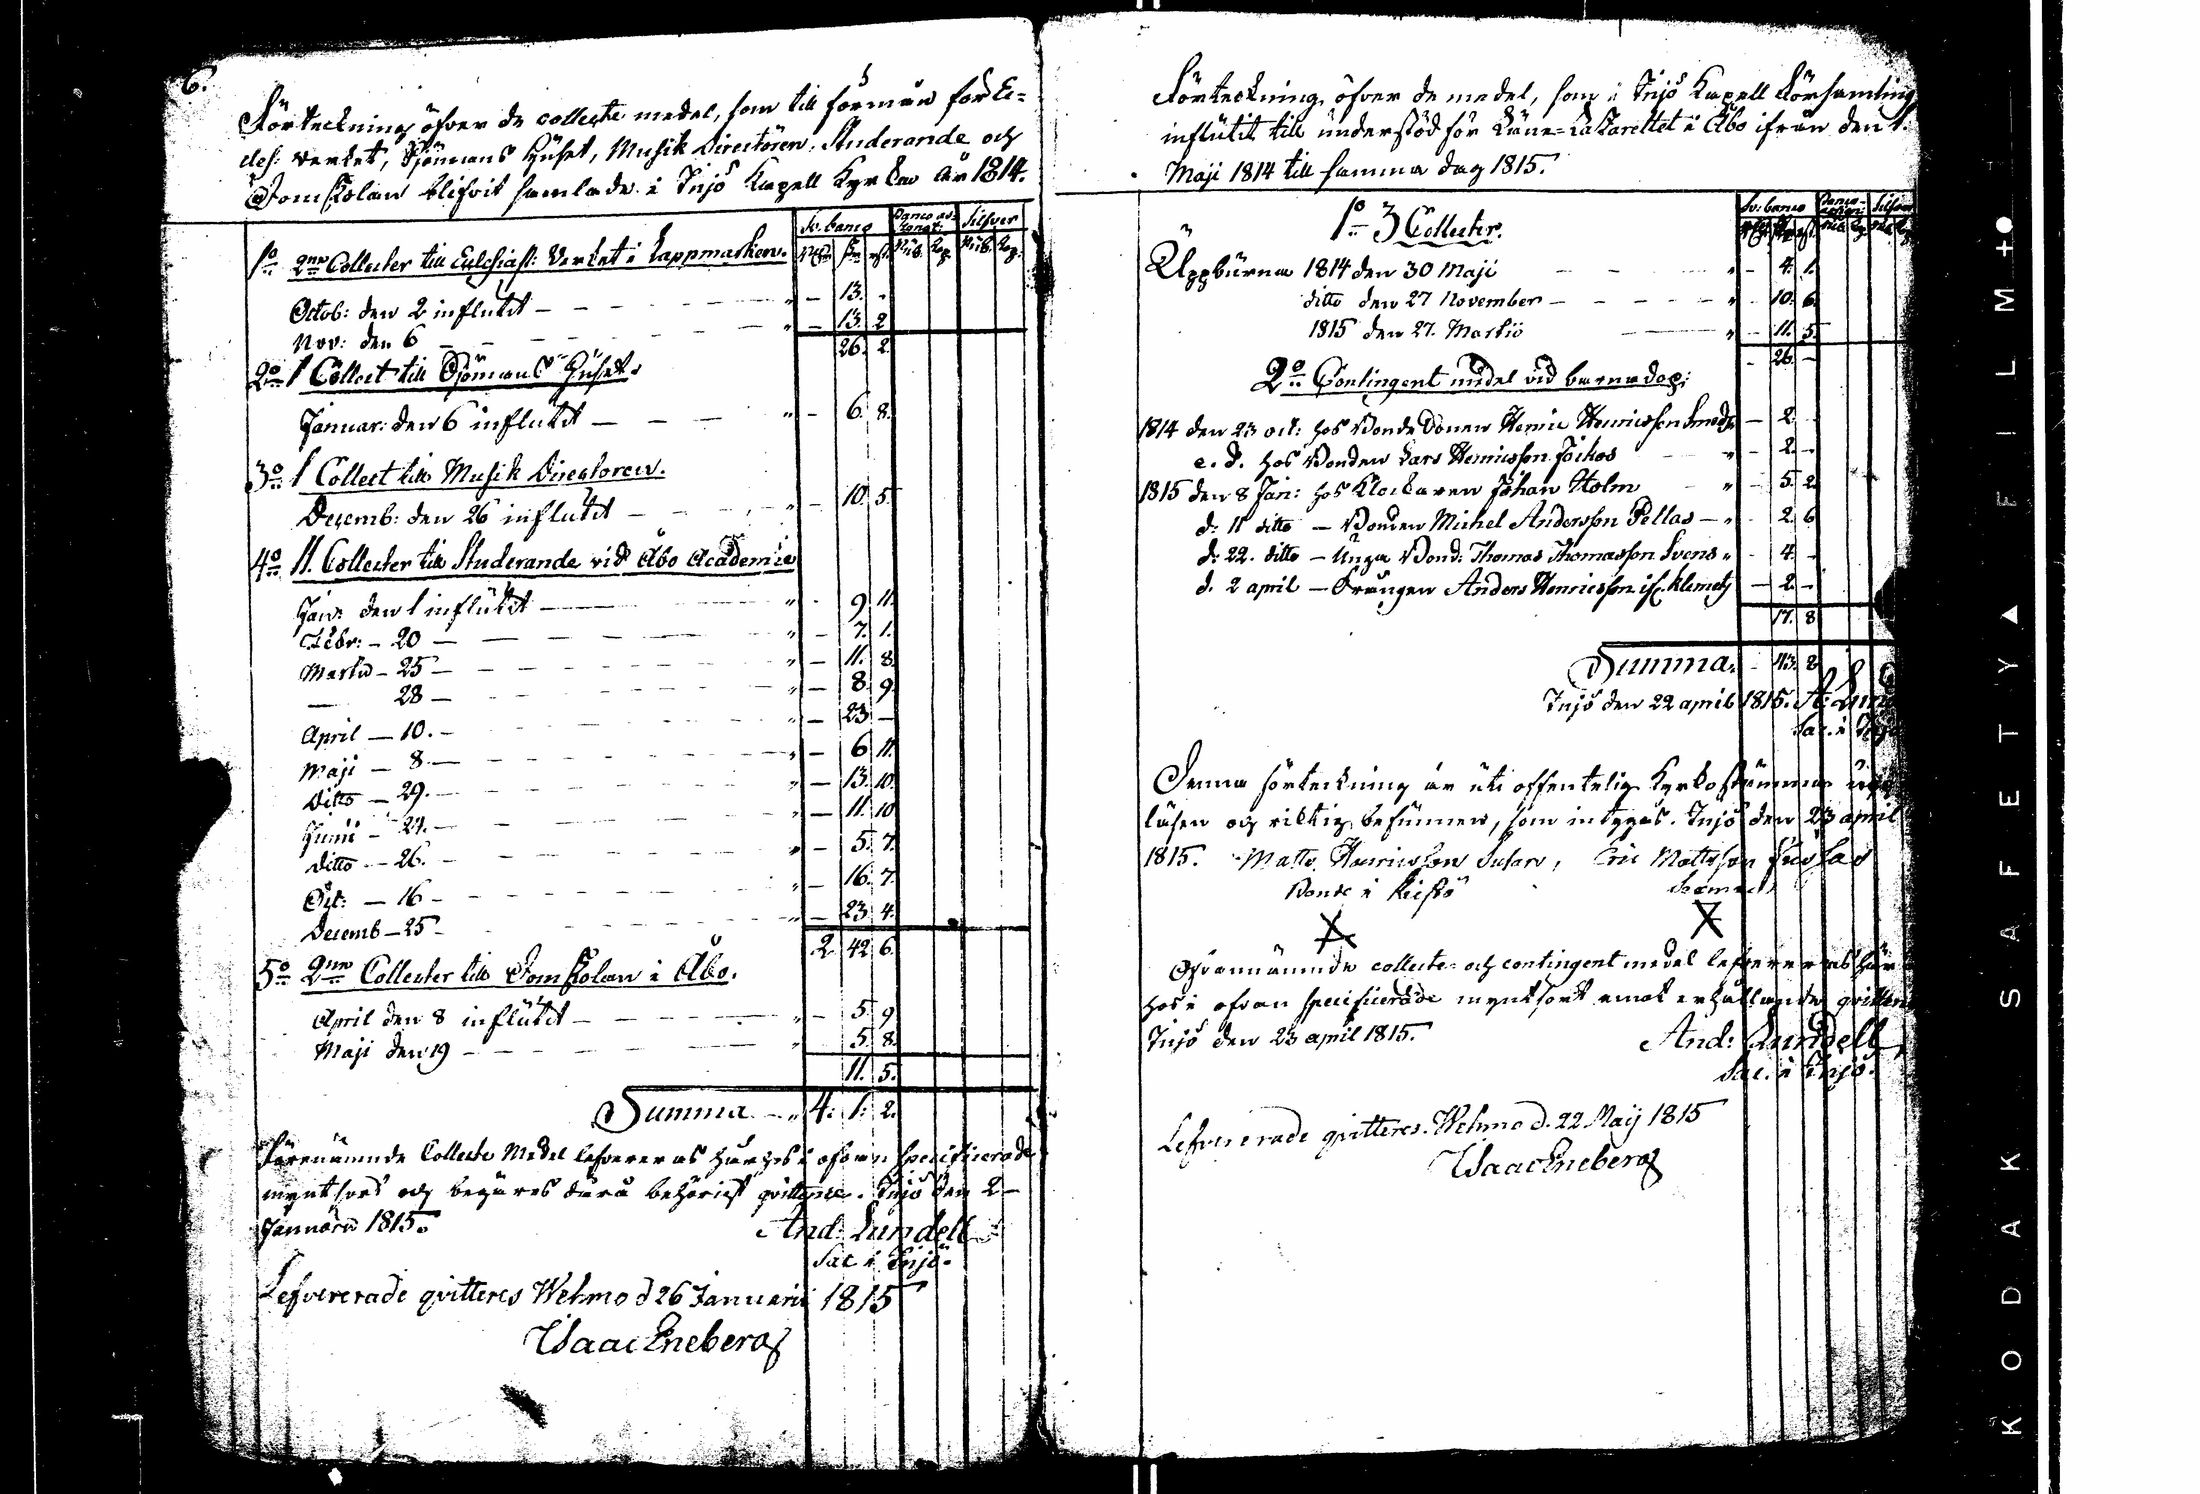 6.
Förteckning öfver de collecte medel, som till förmån för Ec=
cles: verket, Sjömans Huset, Musik Directören, Studerande och
Domskolan blifvit samlade i Iniö Kapell Kyrka år 1814.
Sv. banco Silfver
1o 2ne Collecter till Ecclesiast: Verket i Lappmarken.
Octob: den 2 influtit — — — " — 13. -
Nov: den 6 — — — " — 13. 2
26. 2.
2o 1 Collect till Sjömans Huset.
Januar: den 6 influtit — — — " — 6. 8.
3o 1 Collect till Musik Directoren.
Decemb: den 26 influtit — — — " — 10. 5
4o 11. Collecter till Studerande vid Åbo Academie
Jan: den 1 influtit — — — " - 9 11.
Febr: — 20 — — — " — 7. 1.
Martii — 25 — — — " — 11. 8.
— 28 — — — " — 8. 9.
April — 10. — — — " — 23 —
Maji — 8. — — — " — 6 11.
Ditto — 29. — — — " — 13. 10.
Junii — 24. — — — " — 11. 10
ditto — 26. — — — " — 5. 7.
Oct: — 16 — — — " — 16. 7.
Decemb — 25 — — — " — 23 4.
2. 42 6.
5o 2ne Collecter till Domskolan i Åbo.
April den 8 influtit — — — " — 5. 9
Maji den 19 — — — " 5. 8.
11. 5.
Summa — " 4. 1. 2.
Förenämnde Collecte Medel lefvereras härhos i ofvan specificerade
myntsort och begäres dära behörigt qvittence. Iniö den 2
Januarii 1815.
And: Lundell
Sac i Iniö.
Lefvererade qvitteres Wehmo d 26 Januarii 1815
Isaac Eneberg
Förteckning öfver de medel, som i Iniö Kapell Församling
influtit till understöd för Läne-Lazarettet i Åbo ifrån den 1.
Maji 1814 till samma dag 1815.
Sv: banco Silfver
1o 3 Collecter.
Uppburna 1814 den 30 Maji — — " — 4. 1.
ditto den 27 November — — — " - 10. 6.
1815 den 27. Martii — " - 11. 5.
- 26. —
2o Contingent medel vid barnedop:
1814 den 23 oct: hos Bonde Sonen Henric Henricsson Smeds — 2. -
e. d. hos Bonden Lars Henricsson " — 2. -
1815 den 8 Jan: hos Klockaren Johan Holm " — 5. 2.
d: 11 ditto — Bonden Michel Andersson Pellas — " 2. 6
d: 22. ditto — Unga Bond: Thomas Thomasson Svens " - 4. -
d. 2 april — Drängen Anders Henricsson Klemets — 2. -
17. 8
Summa. - 43. 8
Iniö den 22 april 1815.
Sac. i
Denna förteckning är uti offentelig Kyrkostämma
läsen och riktig befunnen, som intygas. Iniö den 23 april
1815. Matts Henricsson Eric Mattsson
Bonde i
X X
Ofvannämnde collecte- och contingent medel lefvereras här
hos i ofvan specificerade myntsort emot erhållande
Iniö den 23 april 1815.
And: Lundell
Sac. i Iniö.
Lefvererade qvitteres. Wehmo d. 22 Maij 1815
Isaac Eneberg
KODAK SAFETY ▲ FILM